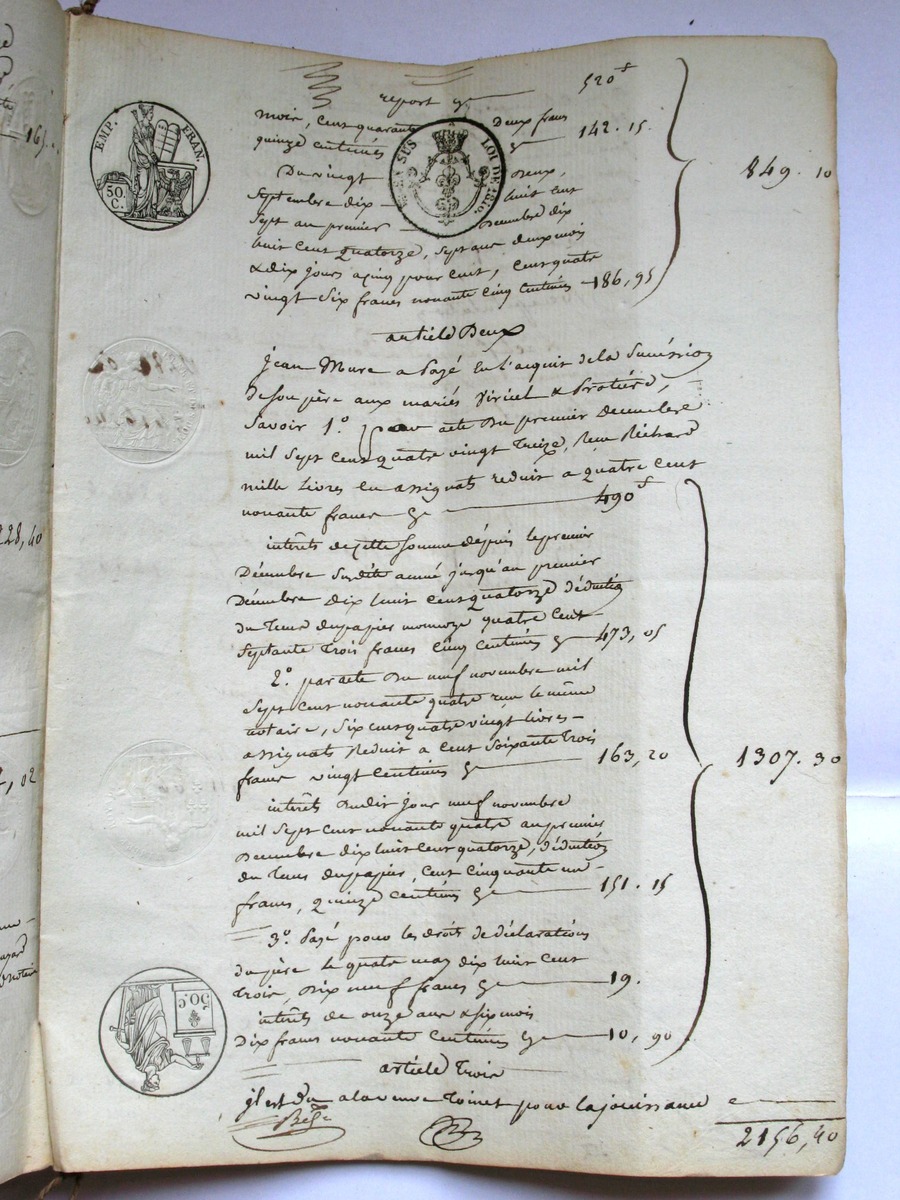 report ... 520 f
mois, cent quarante deux francs
quinze centimes ... 142. 15.
849. 10
Du vingt deux,
Septembre dix - huit cent
Sept au premier Decembre dix
huit cent quatorze, Sept ans deux mois
& dix jours a cinq pour cent, cent quatre
vingt Six francs nonante cinq Centimes 186, 95
article Deux
jean Mure a payé En l'acquit de la Succession
De Son père aux mariés Viricel & Protière,
Savoir 1.o par acte Du premier Decembre
mil Sept cent quatre vingt Treize, Reçu Richard
mille Livres en assignats reduit a quatre Cent
nonante francs 490 f
interets de cette Somme depuis le premier
Décembre Sus dite année jusqu'au premier
Décembre Dix huit cent quatorze déduction
du Tems du papier monnoye quatre Cent
Septante Trois francs Cinq Centimes 473, 05
2.o par acte Du neuf novembre mil
Sept Cent nonante quatre reçu le même
notaire, Six cent quatre vingt livres -
assignats Reduit a Cent Soixante Trois
francs vingt Centimes 163, 20
1307. 30
interêts Dudit jour neuf novembre
mil Sept Cent nonante quatre au premier
Decembre dix huit Cent quatorze, déduction
du Tems du papier, Cent Cinquante un -
francs, quinze Centimes 151. 15
3.o Payé pour les droits de déclarations
Du père le quatre may dix huit cent
Trois, Dix neuf francs 19.
interets de onze ans & Six mois
Dix francs nonante Centimes 10, 90
article Trois
il est Du a la veuve Toinet pour la jouissance
2156, 40
EMP. FRAN.
50. C.
EN SUS LOI DE 1816.
50. C.
165.
228, 40
, 02